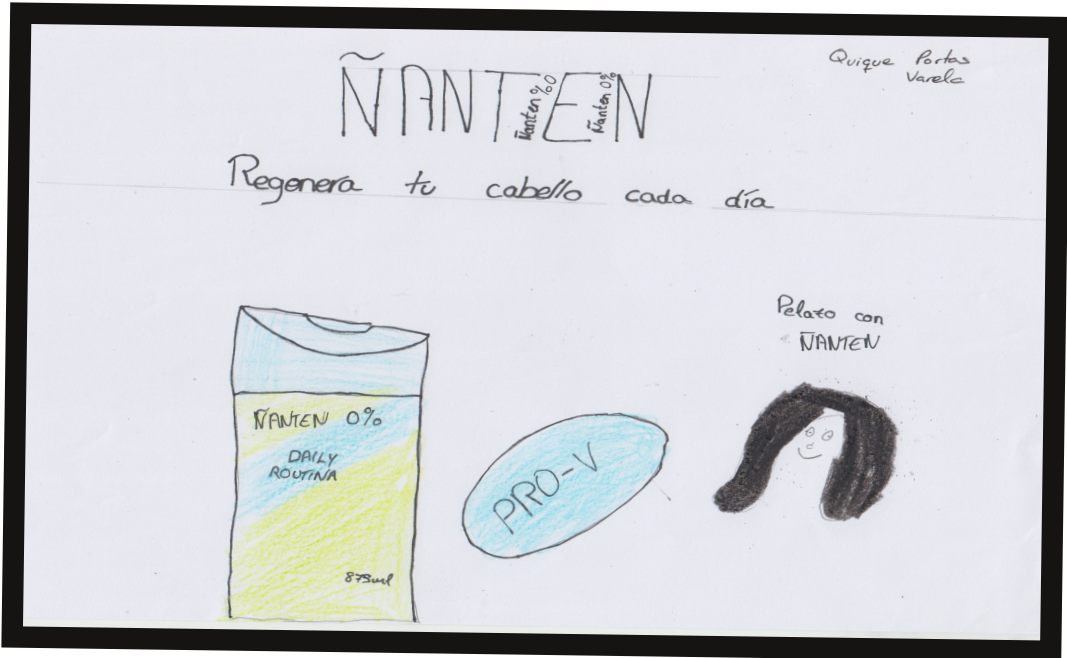 Quique Portas
Varela
ÑANTEN
Ñanten %0
Ñanten 0%
Regenera tu cabello cada día
Pelazo con
ÑANTEN
ÑANTEN 0%
DAILY
ROUTINA
875ml
PRO-V